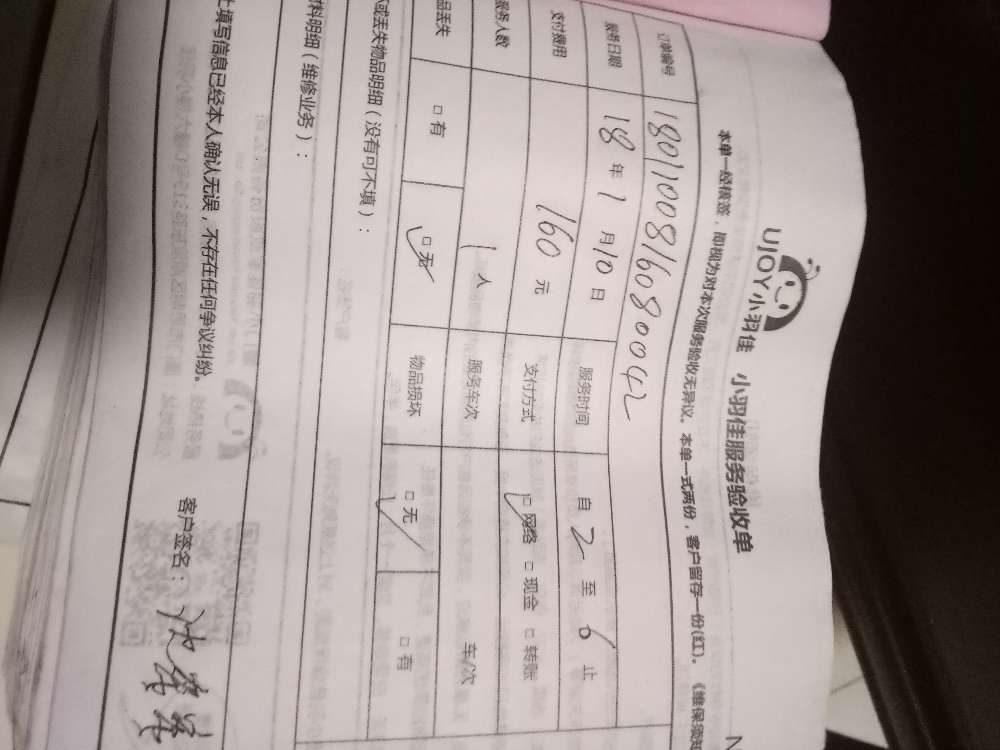 UJOY小羽佳 小羽佳服务验收单
N
本单一经核签，即视为对本次服务验收无异议。本单一式两份，客户留存一份(红)。《维保须知
订单编号 1801100816080042
服务日期 18年1月10日 服务时间 自2至6止
支付费用 160元 支付方式 □网络 □现金 □转账
服务人数 1人 服务车次 车/次
品丢失 □有 □无 物品损坏 □无 □有
或丢失物品明细（没有可不填）：
料明细（维修业务）：
上填写信息已经本人确认无误，不存在任何争议纠纷。 客户签名：